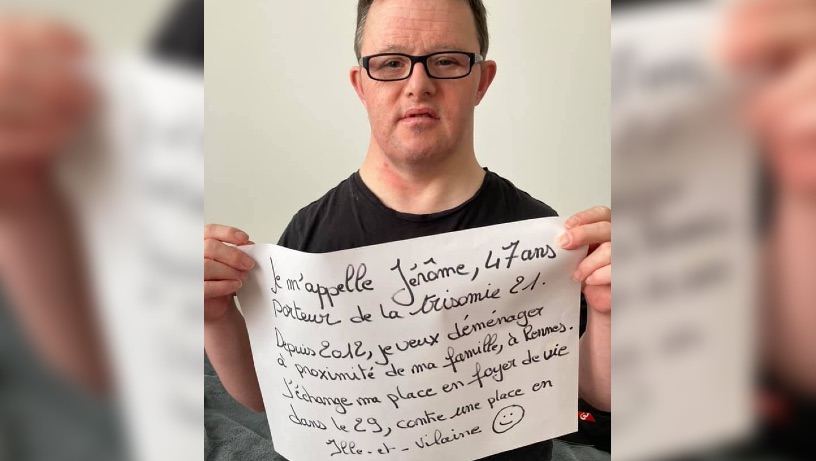 Je m'appelle Jérôme, 47 ans
porteur de la trisomie 21.
Depuis 2012, je veux déménager
à proximité de ma famille, à Rennes.
J'échange ma place en foyer de vie
dans le 29, contre une place en
Ille-et-Vilaine ☺